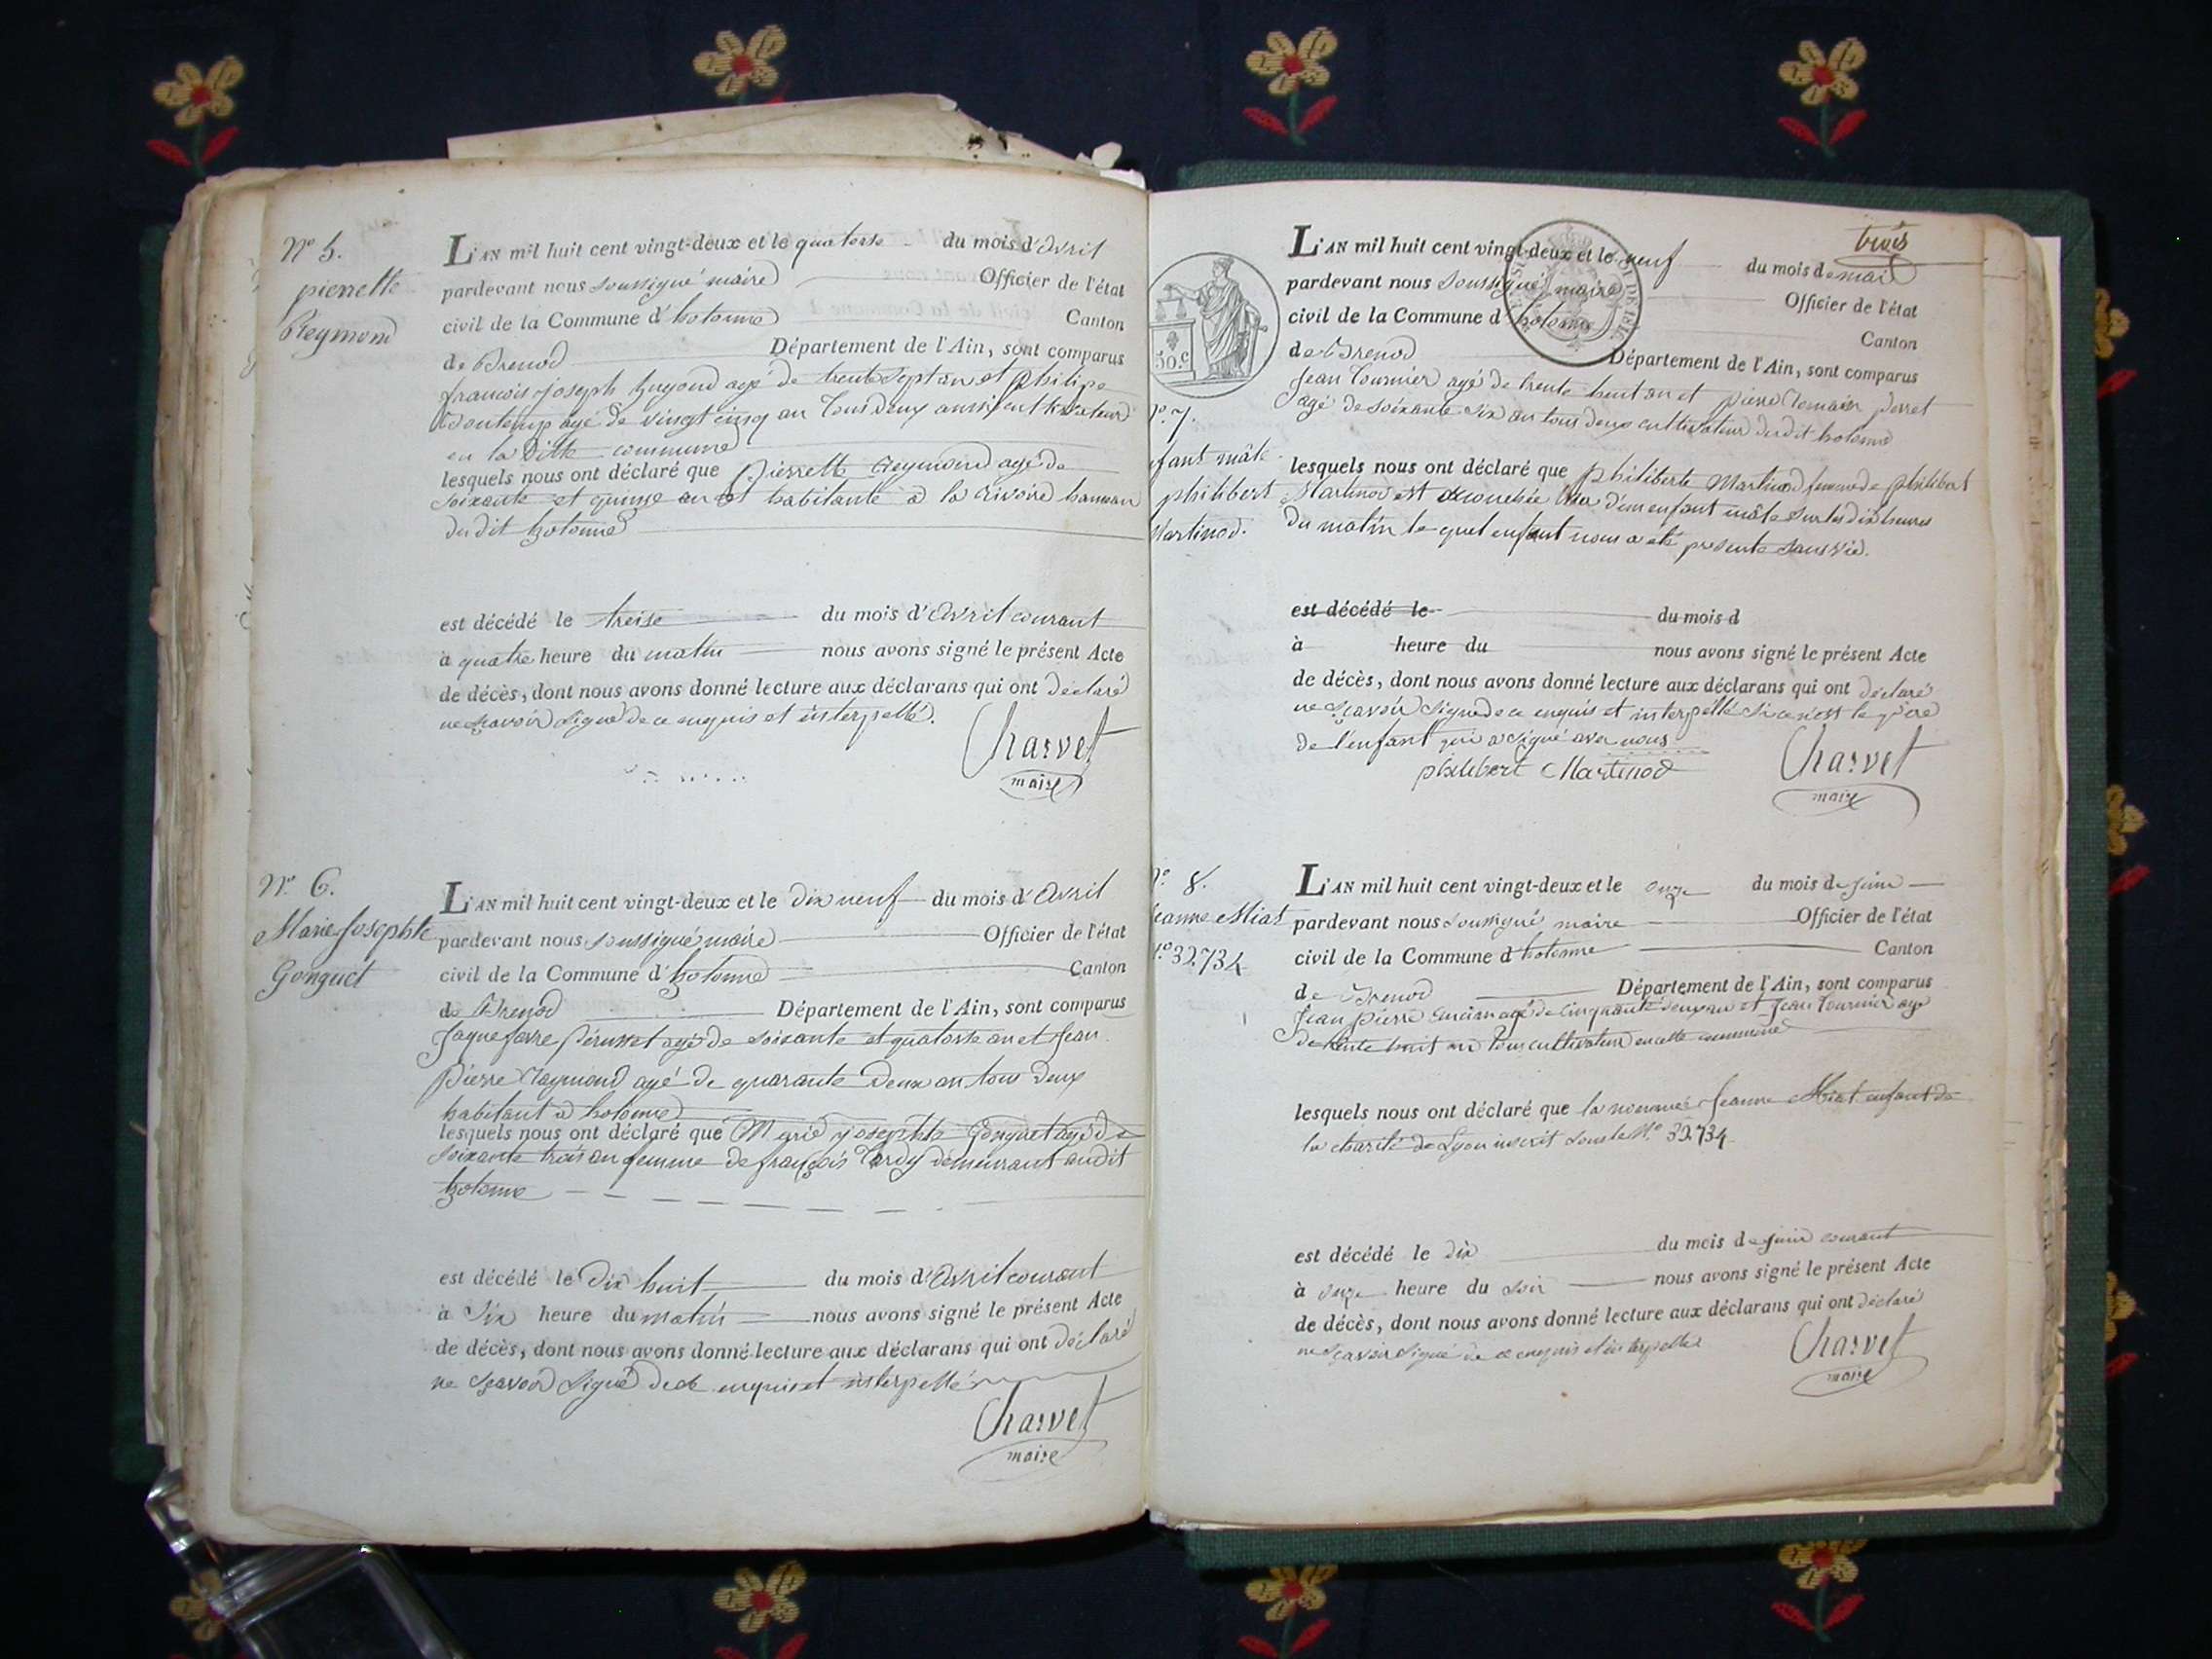 Nº 5.
pierrette
Reymond
L'AN mil huit cent vingt-deux et le quatorse du mois d'avril
pardevant nous soussigné maire Officier de l'état
civil de la Commune d'hotonne Canton
de Brenod Département de l'Ain, sont comparus
francois joseph agé de trente sept an et philipe
agé de vingt cinq an tous deux cultivateur
en la ditte commune
lesquels nous ont déclaré que pierrette Reymond agé de
soixante et quinze an et habitante a la rivoire hameau
du dit hotonne
est décédé le treise du mois d'avril courant
à quatre heure du matin nous avons signé le présent Acte
de décès, dont nous avons donné lecture aux déclarans qui ont déclaré
ne sçavoir signé de ce enquis et interpellé.
Charvet
maire
Nº 6.
Marie Josephte
Gonguet
L'AN mil huit cent vingt-deux et le dix neuf du mois d'avril
pardevant nous soussigné maire Officier de l'état
civil de la Commune d'hotonne Canton
de Brenod Département de l'Ain, sont comparus
Jaque favre agé de soixante et quatorse an et Jean
pierre Raymond agé de quarante deux an tous deux
habitant a hotonne
lesquels nous ont déclaré que Marie josephte Gonguet agé de
soixante trois an femme de françois tardy demeurant audit
hotonne
est décédé le dix huit du mois d'avril courant
à six heure du matin nous avons signé le présent Acte
de décès, dont nous avons donné lecture aux déclarans qui ont déclaré
ne sçavoir signé de ce enquis et interpellé
Charvet
maire
trois
50.c
º 7.
fant mâle
philibert
Martinod.
L'AN mil huit cent vingt-deux et le neuf du mois de mai
pardevant nous soussigné maire Officier de l'état
civil de la Commune d hotonne Canton
de Brenod Département de l'Ain, sont comparus
Jean Tournier agé de trente huit an et pierre Romain perret
agé de soixante six an tous deux cultivateur dudit hotonne
lesquels nous ont déclaré que philiberte Martinod femme de philibert
Martinod est accouchée d'un enfant mâle sur les dix heures
du matin le quel enfant nous a eté presenté sans vie.
est décédé le du mois d
à heure du nous avons signé le présent Acte
de décès, dont nous avons donné lecture aux déclarans qui ont déclaré
ne sçavoir signé de ce enquis et interpellé si ce n'est le père
de l'enfant qui a signé avec nous
philibert Martinod
Charvet
maire
º 8.
Jeanne Miat
º 32.734
L'AN mil huit cent vingt-deux et le onze du mois de juin
pardevant nous soussigné maire Officier de l'état
civil de la Commune d hotonne Canton
de Brenod Département de l'Ain, sont comparus
Jean pierre agé de cinquante deux an et Jean Tournier agé
de trente huit an tous cultivateur en cette commune
lesquels nous ont déclaré que la nommée Jeanne Miat enfant de
la charité de Lyon inscrit sous le Nº 32.734
est décédé le dix du mois de juin courant
à onze heure du soir nous avons signé le présent Acte
de décès, dont nous avons donné lecture aux déclarans qui ont déclaré
ne sçavoir signé de ce enquis et interpellé
Charvet
maire